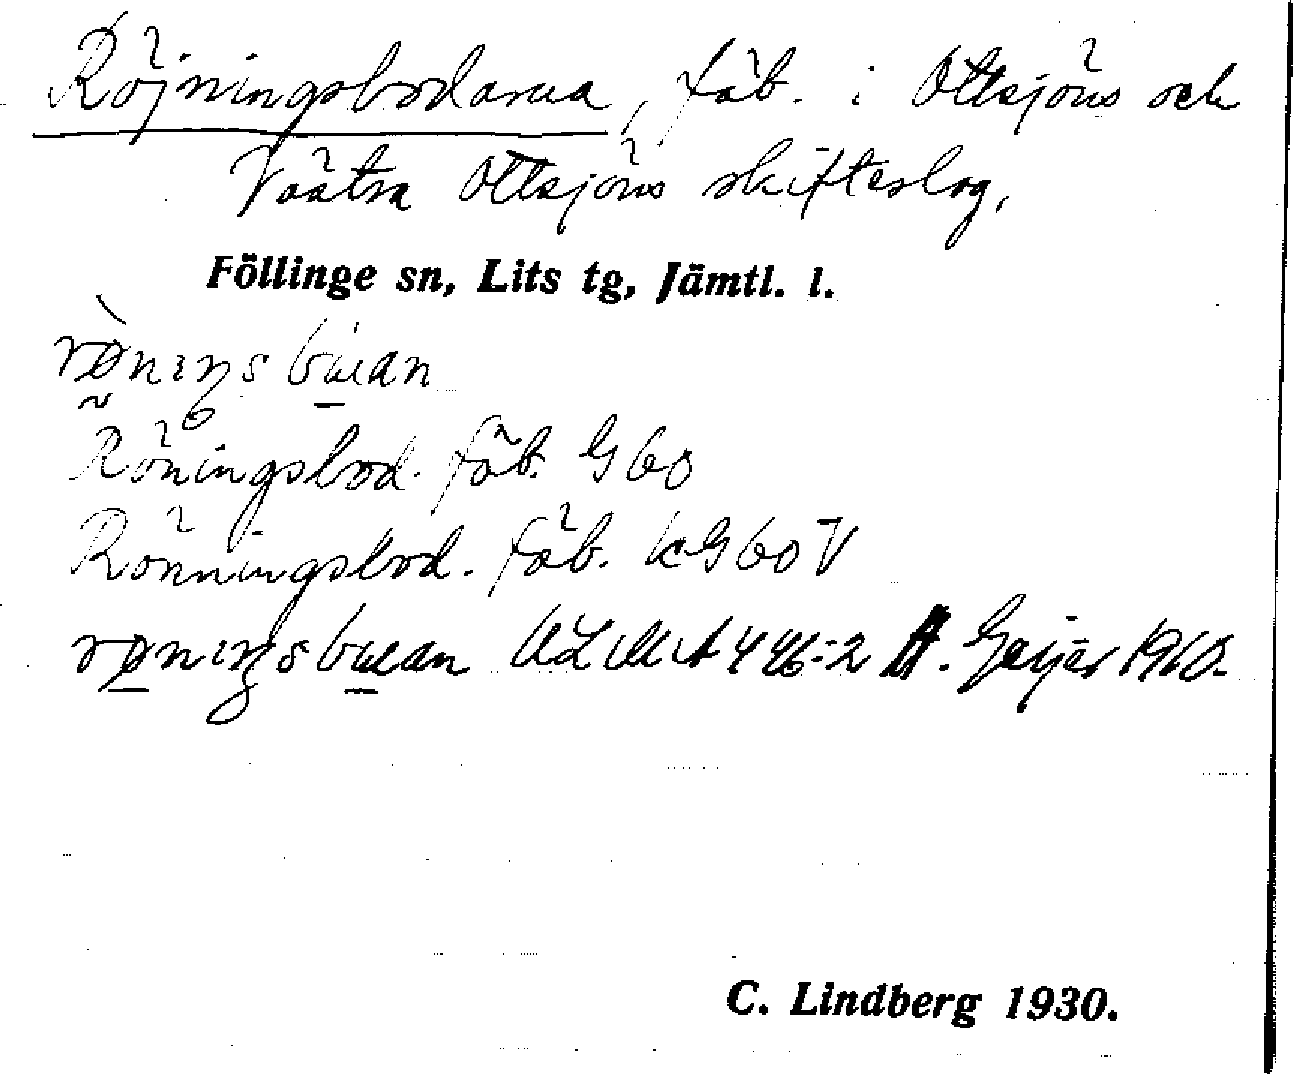 Röjningsbodarna, fäb. i Ottsjöns och
Västra Ottsjöns skifteslag,
Föllinge sn, Lits tg, Jämtl. l.
Röningsbod. fäb. G 60
Rönningsbod. fäb. kG 60 V
ULMA 446:2 H. Geijer 1960.
C. Lindberg 1930.